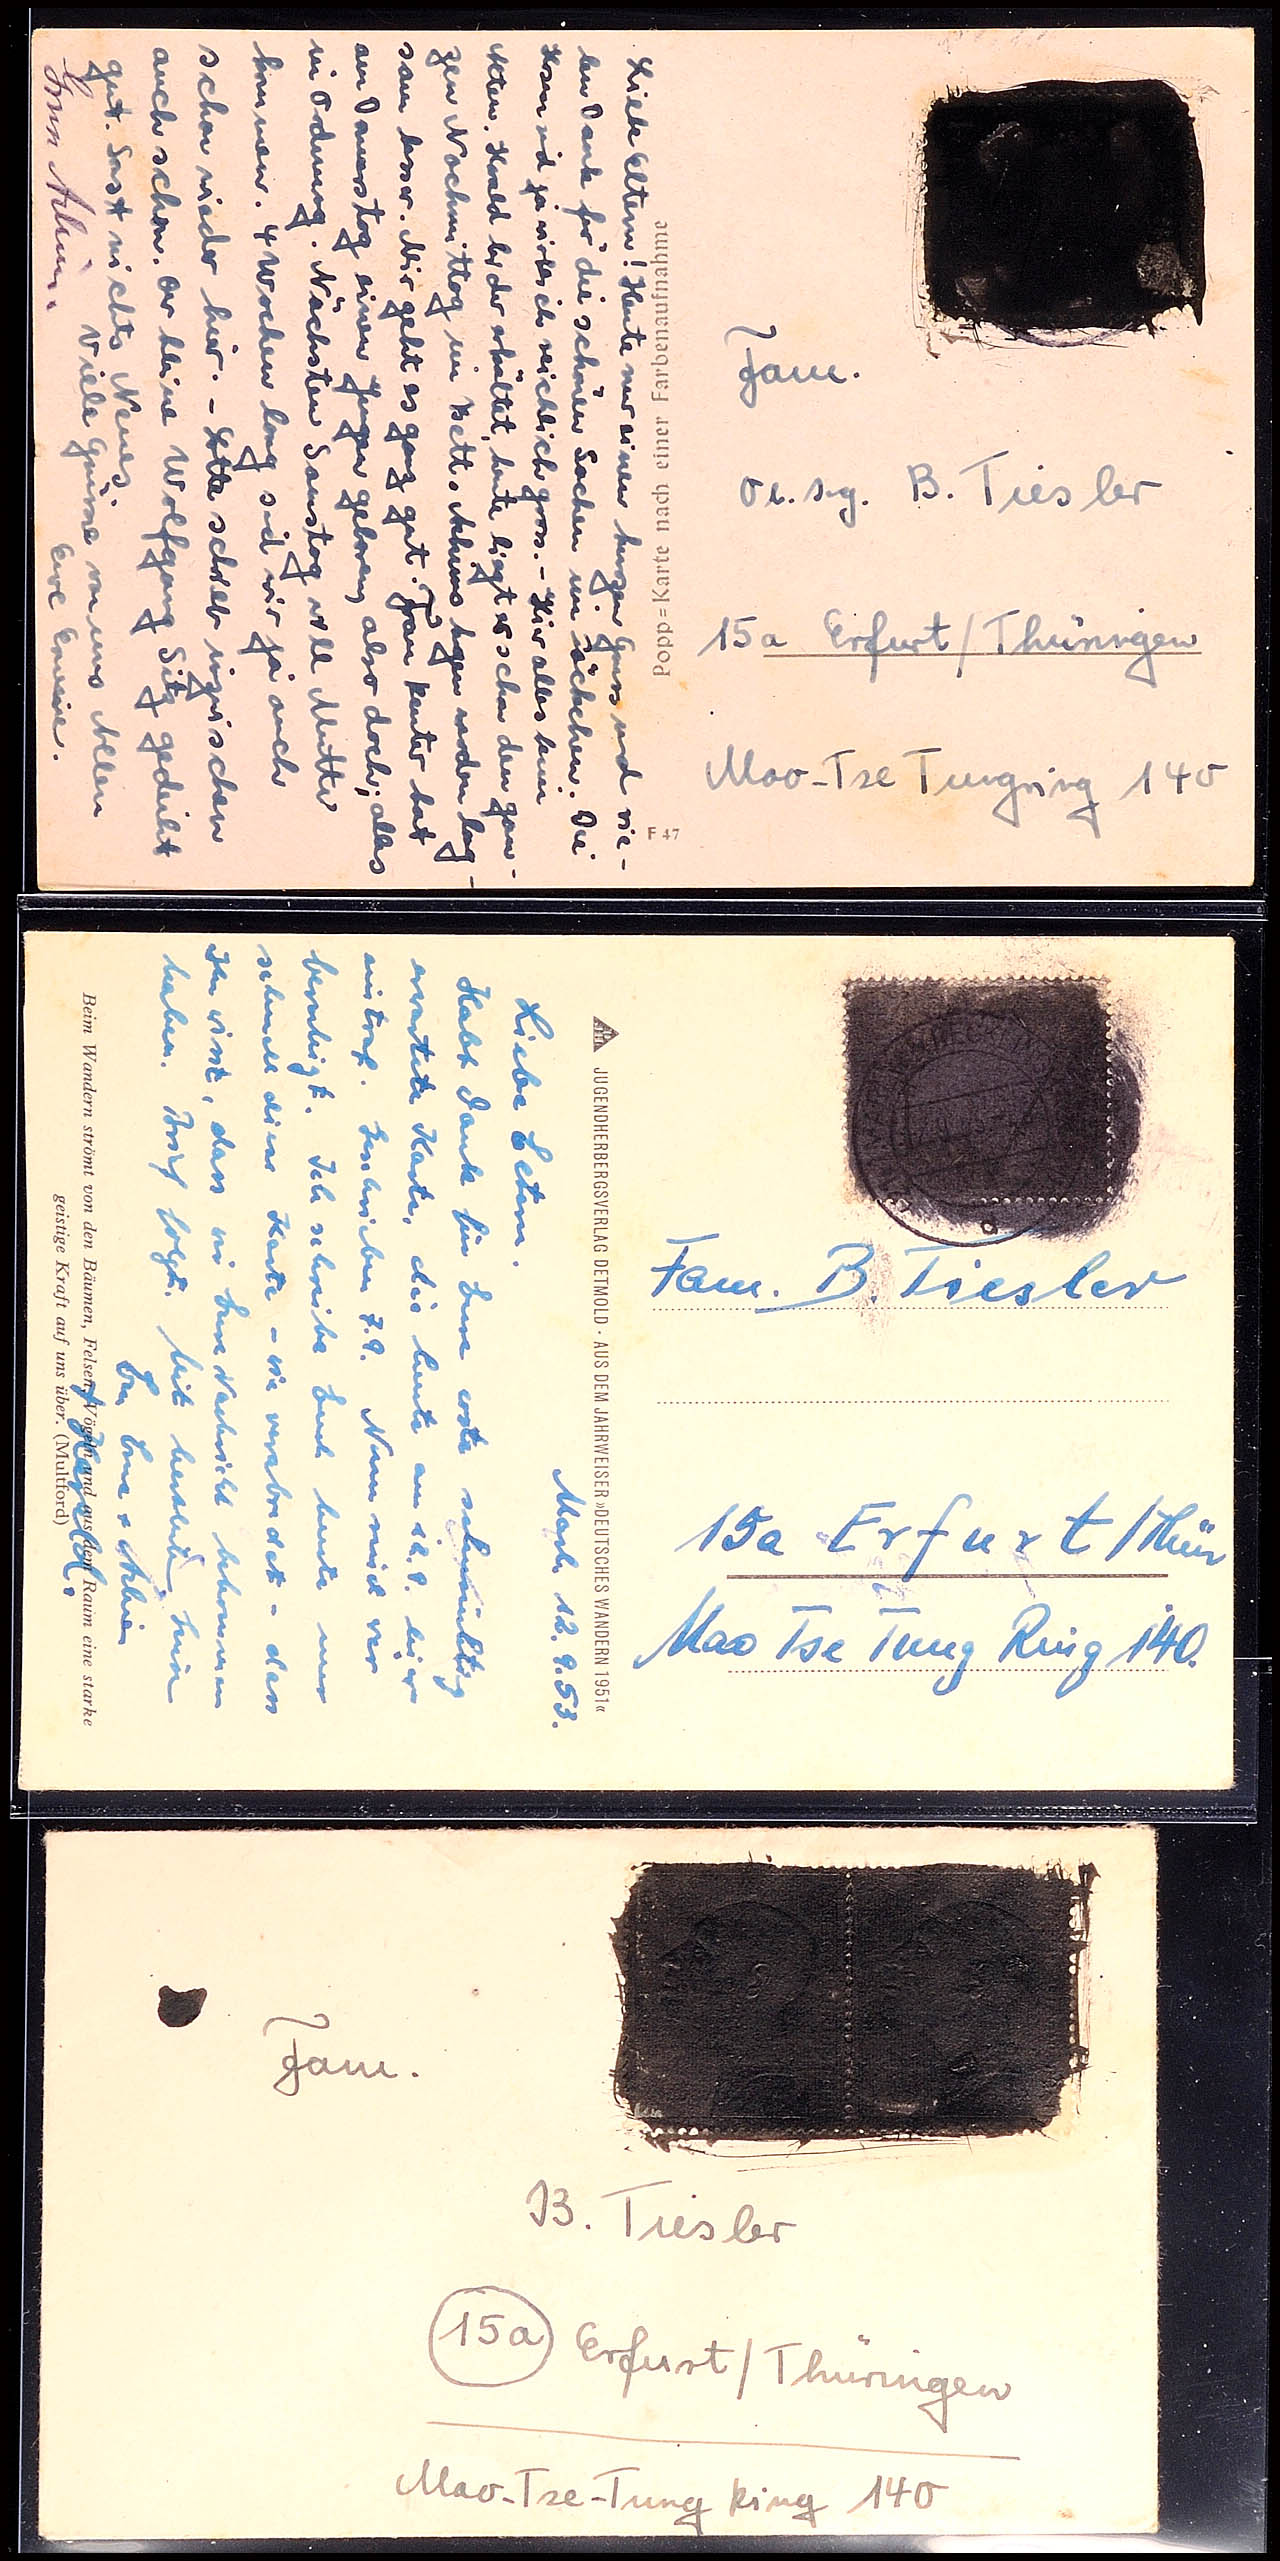 Liebe Eltern! Heute nur einen kurzen Gruss und vie-
len Dank für die schönen Sachen im Päckchen. Die
Hosen sind ja wirklich reichlich gross. - Hier alles beim
Alten. Harald leider erkältet, heute liegt er schon den gan-
zen Nachmittag im Bett. Achims Augen werden lang-
sam besser. Mir geht es ganz gut. Frau Kanter hat
am Donnerstag einen Jungen geboren, also doch; alles
in Ordnung. Nächsten Samstag will Mutter
kommen. 4 Wochen lang sind wir ja auch
schon wieder hier. - Lotte schrieb inzwischen
auch schon. Der kleine Wolfgang Sitz gedeiht
gut. Sonst nichts Neues.
Viele Grüsse von uns Allen
Eure
Gruss Achim.
Popp=Karte nach einer Farbenaufnahme
F 47
Fam.
B. Tiesler
15a Erfurt/Thüringen
Mao-Tse Tungring 140
JUGENDHERBERGSVERLAG DETMOLD · AUS DEM JAHRWEISER »DEUTSCHES WANDERN 1951«
12.9.53.
Liebe Eltern.
Habt Dank für Eure erste sehnsüchtig
erwartete Karte, die heute am 12.9. hier
eintraf. Geschrieben 7.9. Nun sind wir
beruhigt. Ich schreibe Euch heute nur
schnell diese Karte - wie verabredet - dass
Ihr wisst, dass wir Eure Nachricht bekommen
haben. Brief folgt. Mit herzlichen Grüssen
Harald.
Beim Wandern strömt von den Bäumen, Felsen, Vögeln und aus dem Raum eine starke
geistige Kraft auf uns über. (Multford)
Fam. B. Tiesler
15a Erfurt/Thür
Mao Tse Tung Ring 140.
Fam.
B. Tiesler
15a Erfurt/Thüringen
Mao-Tse-Tung Ring 140